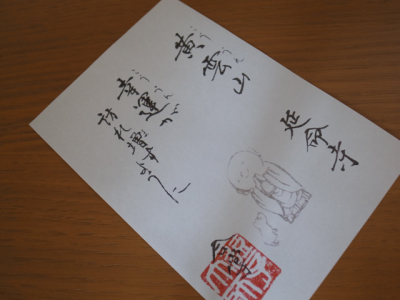 黄雲山　延命寺
幸運が
訪れ増すように